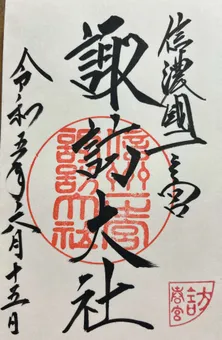 信濃國一之宮
諏訪大社
令和五年 月十五日
諏訪大社
諏訪
春宮